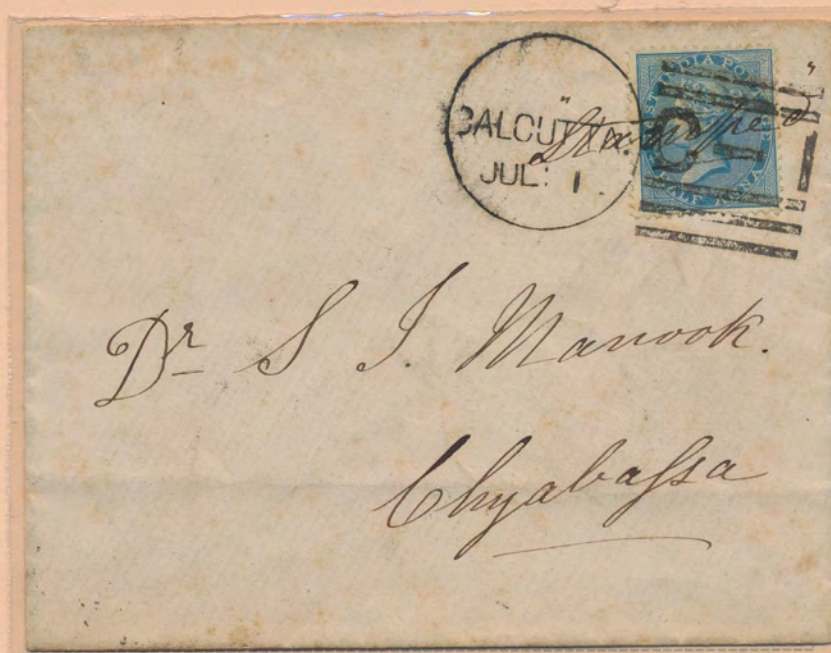 CALCUTTA.
JUL: 1
"Stamped"
EAST INDIA POSTAGE
HALF ANNA
C
1
Dr S J. Manook.
Chyabassa